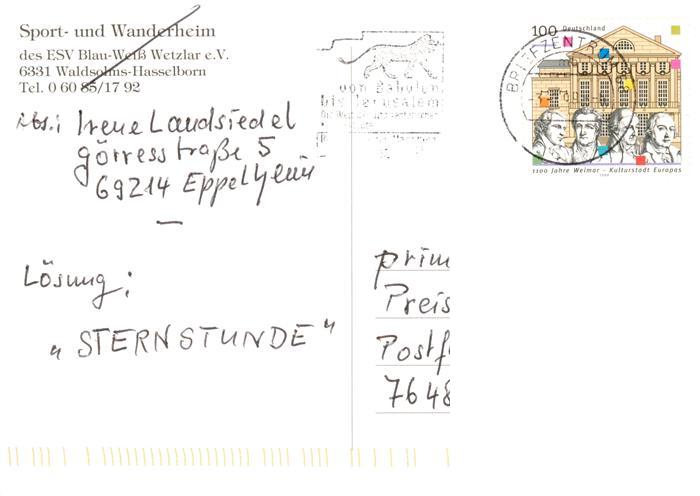 Sport- und Wanderheim
des ESV Blau-Weiß Wetzlar e.V.
6331 Waldsolms-Hasselborn
Tel. 0 60 85/17 92
Abs.: Irene Landsiedel
görresstraße 5
69214 Eppelheim
Lösung:
„STERNSTUNDE"
von Babylon
bis Jerusalem
BRIEFZENTR
100 Deutschland
1100 Jahre Weimar - Kulturstadt Europas
1999
prim
Preis
Postf
7648